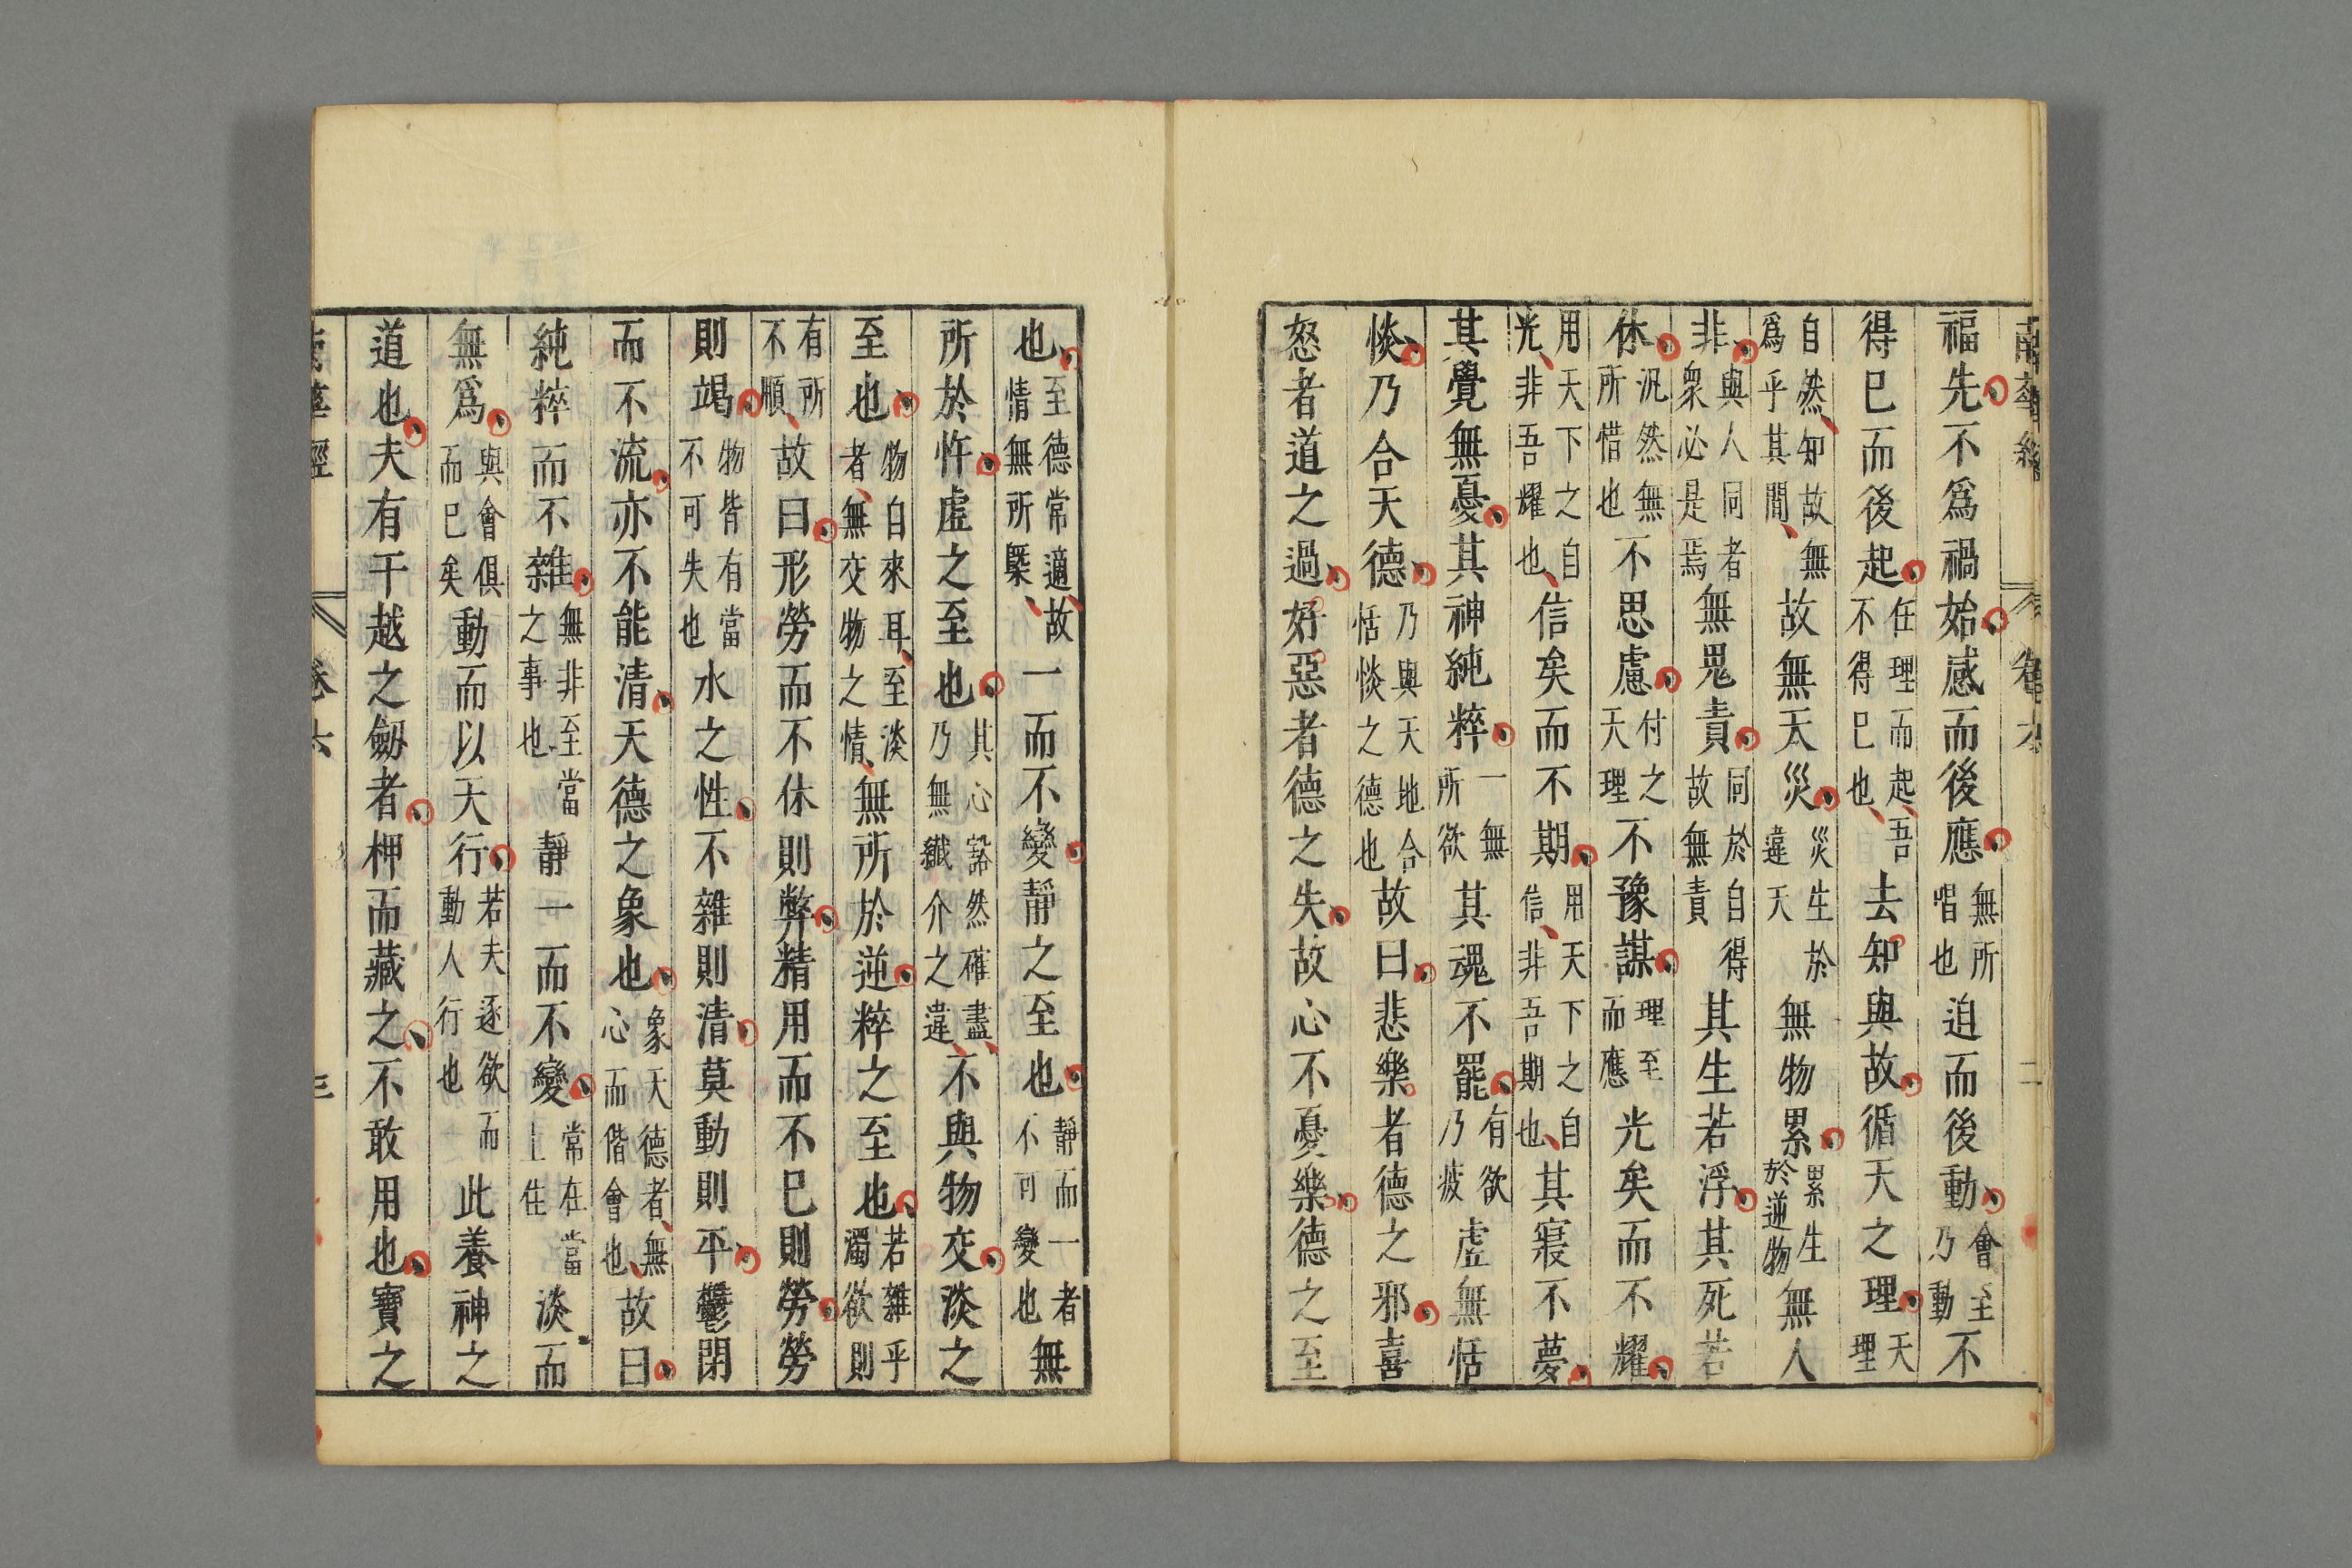 南華經 卷六 二
福先不爲禍始感而後應無所唱也迫而後動會至乃動不
得已而後起任理而起吾不得已也去知與故循天之理天理
自然知故無爲乎其間故無天災災生於違天無物累累生於逆物無人
非與人同者衆必是焉無鬼責同於自得故無責其生若浮其死若
休汎然無所惜也不思慮付之天理不豫謀理至而應光矣而不耀
用天下之自光非吾耀也信矣而不期用天下之自信非吾期也其寢不夢
其覺無憂其神純粹一無所欲其魂不罷有欲乃疲虛無恬
惔乃合天德乃與天地合恬惔之德也故曰悲樂者德之邪喜
怒者道之過好惡者德之失故心不憂樂德之至
也至德常適故情無所槩一而不變靜之至也靜而一者不可變也無
所於忤虛之至也其心豁然確盡乃無纖介之違不與物交淡之
至也物自來耳至淡者無交物之情無所於逆粹之至也若雜乎濁欲則
有所不順故曰形勞而不休則弊精用而不已則勞勞
則竭物皆有當不可失也水之性不雜則清莫動則平鬱閉
而不流亦不能清天德之象也象天德者無心而偕會也故曰
純粹而不雜無非至當之事也靜一而不變常在當上住淡而
無爲與會俱而已矣動而以天行若夫逐欲而動人行也此養神之
道也夫有干越之劒者柙而藏之不敢用也寶之
卷六 三